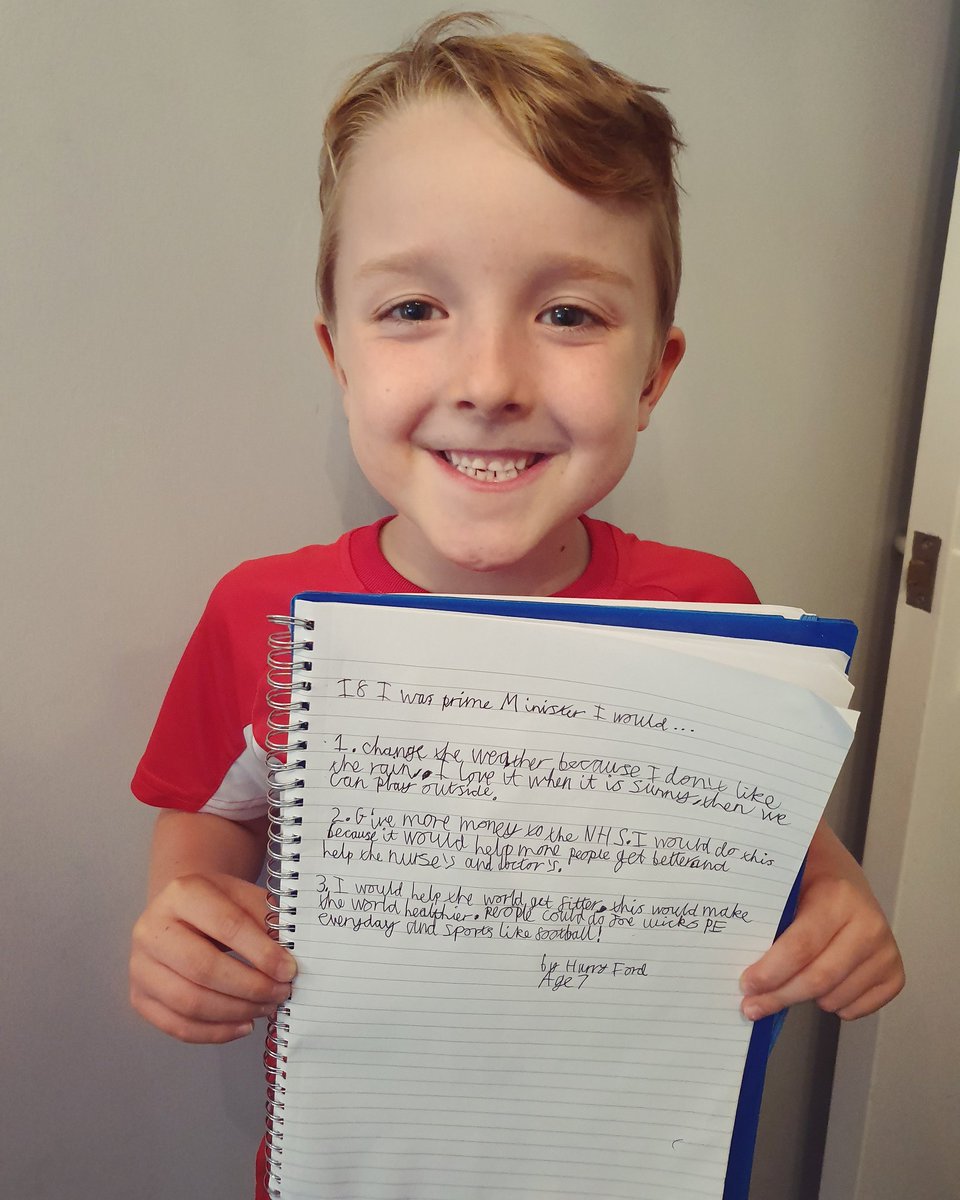 If I was prime Minister I would...
1. change the weather because I don't like
the rain. I love it when it is sunny, then we
can play outside.
2. Give more money to the NHS. I would do this
because it would help more people get better and
help the nurse's and doctor's.
3. I would help the world get fitter, this would make
the world healthier. People could do Joe wicks PE
everyday and sports like football!
by Harry Ford
Age 7